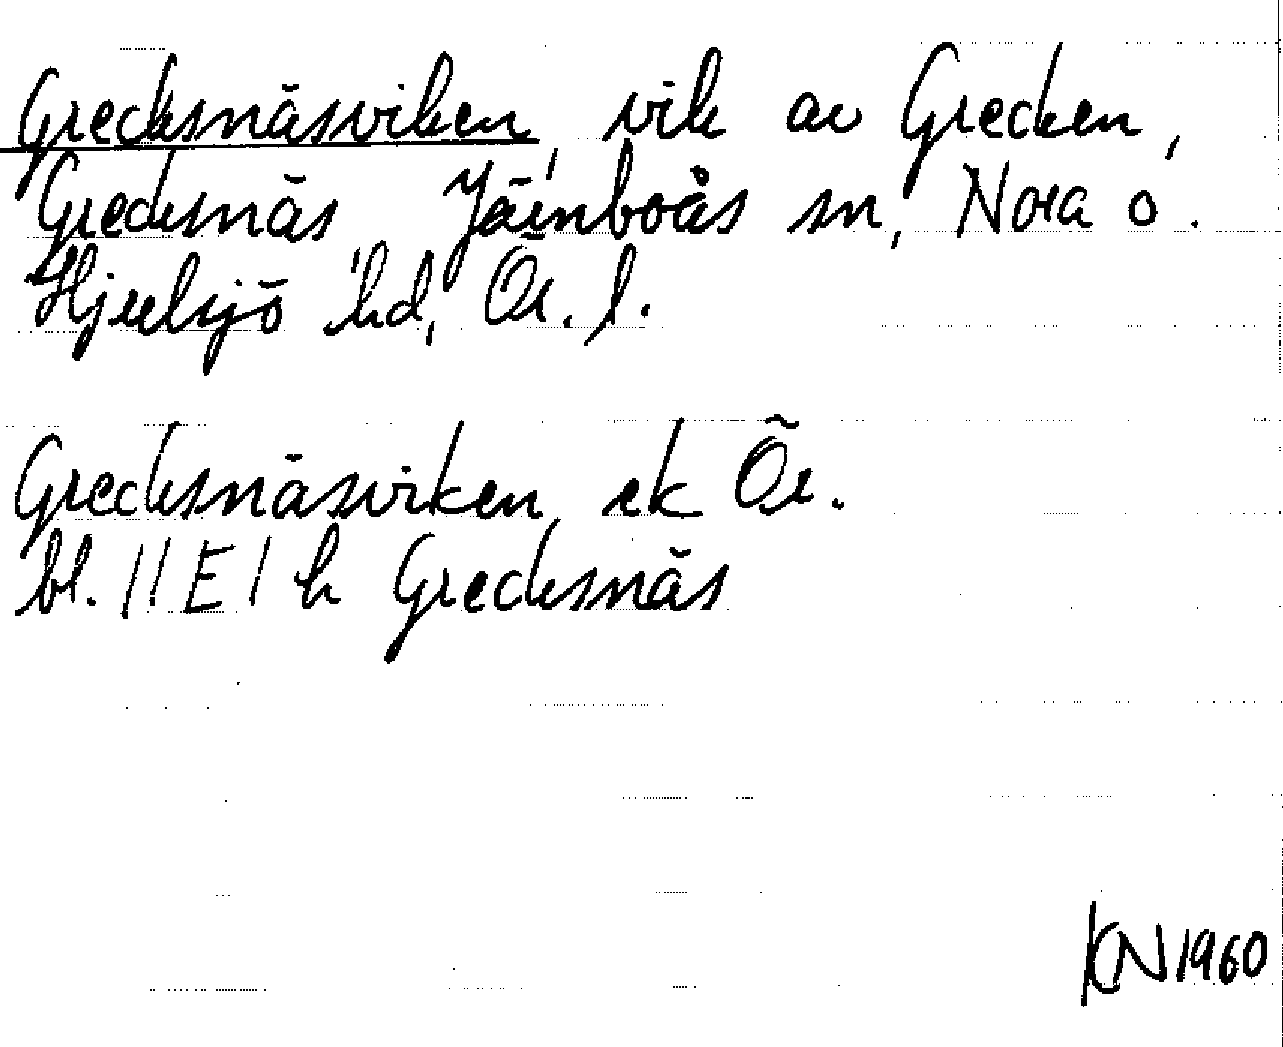 Grecksnäsviken, vik av Grecken,
Grecksnäs, Järnboås sn, Nora o.
Hjulsjö hd, Ör. l.
Grecksnäsviken, ek Ör.
bl. 11 E 1 h Grecksnäs
KN 1960